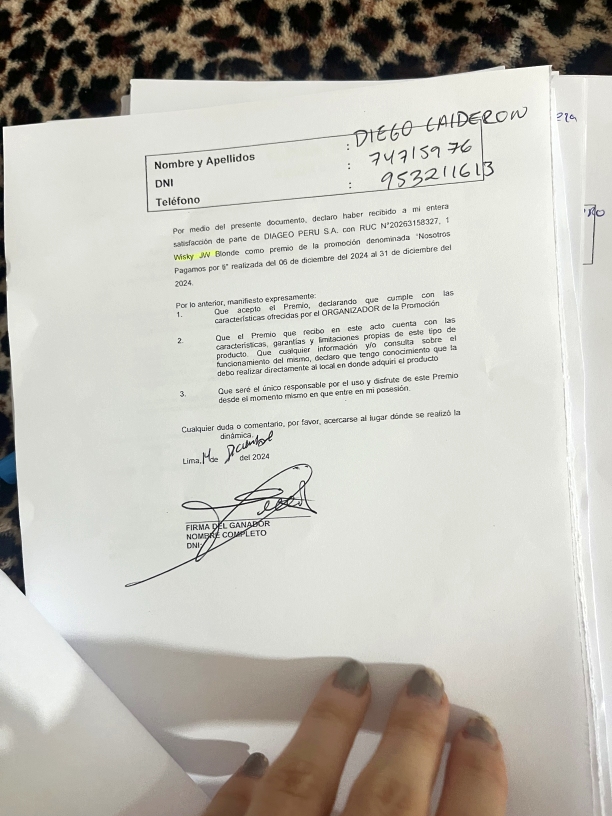 Nombre y Apellidos : DIEGO CALDERON
DNI : 74715976
Teléfono : 953211613
Por medio del presente documento, declaro haber recibido a mi entera
satisfacción de parte de DIAGEO PERU S.A. con RUC N°20263158327, 1
Wisky JW Blonde como premio de la promoción denominada "Nosotros
Pagamos por ti" realizada del 06 de diciembre del 2024 al 31 de diciembre del
2024.
Por lo anterior, manifiesto expresamente:
1. Que acepto el Premio, declarando que cumple con las
características ofrecidas por el ORGANIZADOR de la Promoción
2. Que el Premio que recibo en este acto cuenta con las
características, garantías y limitaciones propias de este tipo de
producto. Que cualquier información y/o consulta sobre el
funcionamiento del mismo, declaro que tengo conocimiento que la
debo realizar directamente al local en donde adquirí el producto
3. Que seré el único responsable por el uso y disfrute de este Premio
desde el momento mismo en que entre en mi posesión.
Cualquier duda o comentario, por favor, acercarse al lugar dónde se realizó la
dinámica.
Lima, de Diciembre del 2024
FIRMA DEL GANADOR
NOMBRE COMPLETO
DNI: